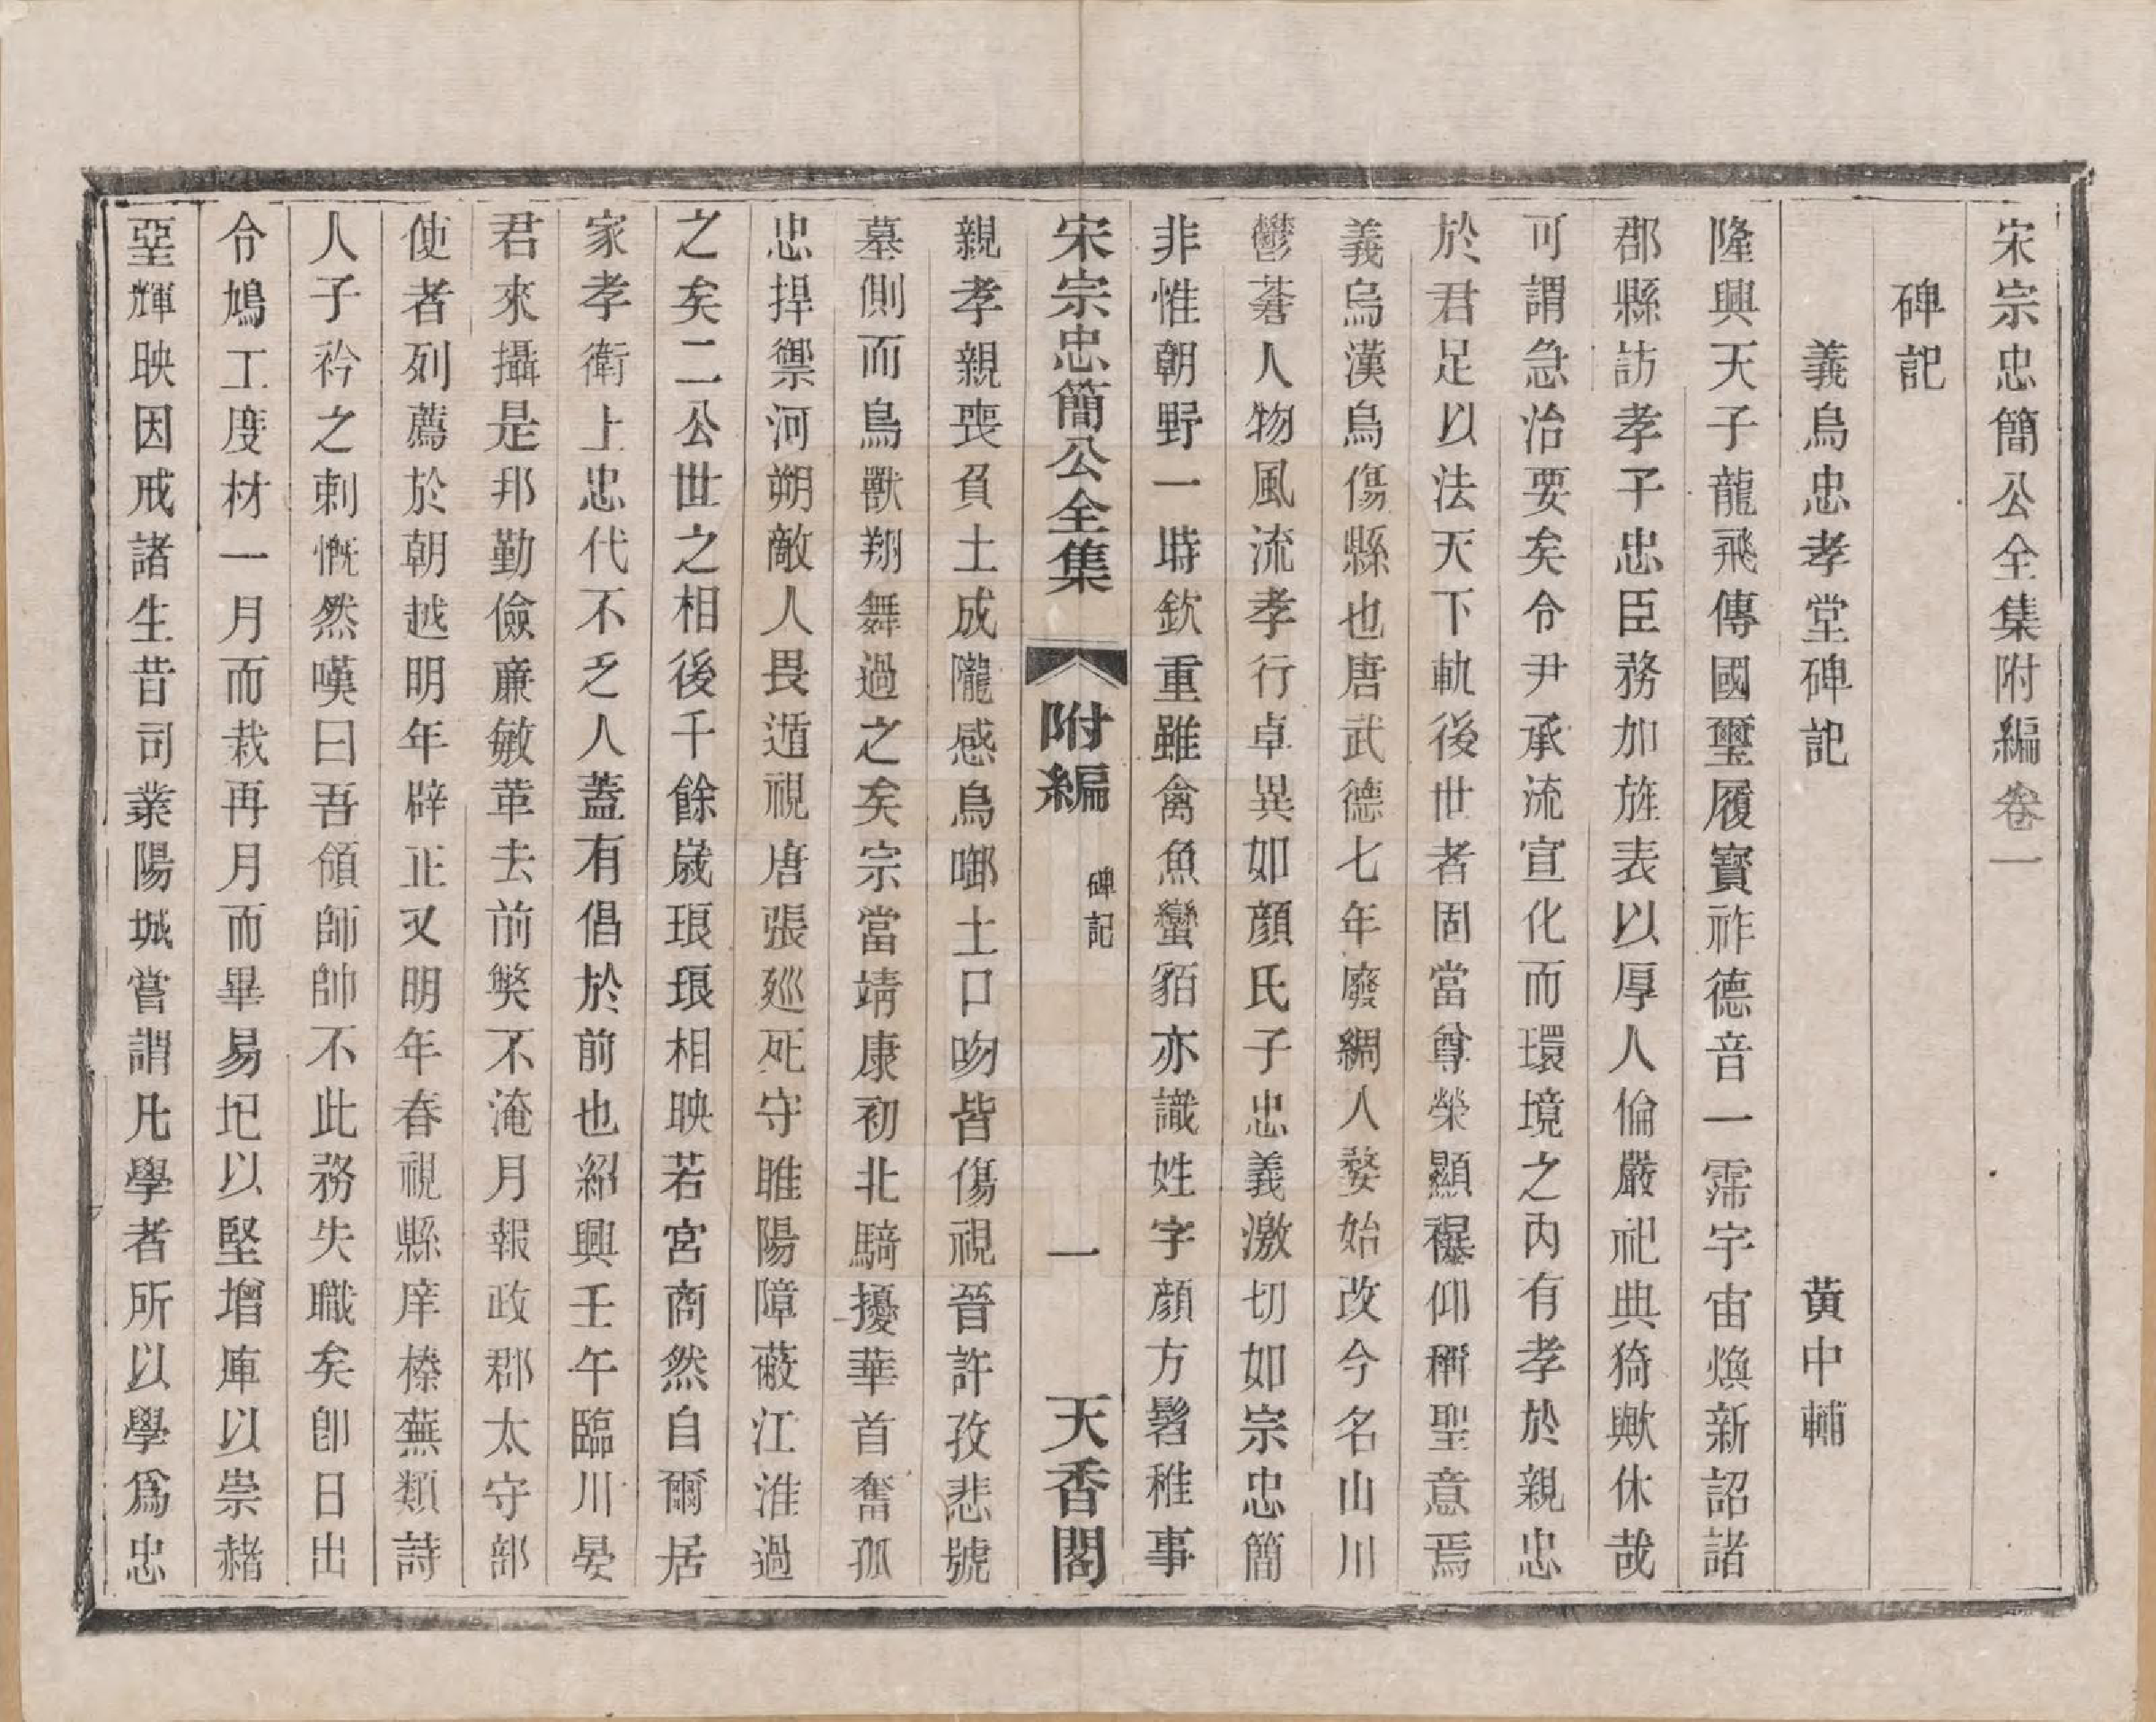 宋宗忠簡公全集附編卷一
碑記
義烏忠孝堂碑記 黄中輔
隆興天子龍飛傳國璽履寳祚德音一霈宇宙煥新詔諸
郡縣訪孝子忠臣務加旌表以厚人倫嚴祀典猗歟休哉
可謂急治要矣令尹承流宣化而環境之内有孝於親忠
於君足以法天下軌後世者固當尊榮顯襮仰稱聖意焉
義烏漢烏傷縣也唐武德七年廢綢人婺始改今名山川
鬱蒼人物風流孝行卓異如顔氏子忠義激切如宗忠簡
非惟朝野一時欽重雖禽魚蠻貊亦識姓字顔方髫稚事
宋宗忠簡公全集 附編 碑記 一 天香閣
親孝親喪負土成隴感烏啣土口吻皆傷視晉許孜悲號
墓側而鳥獸翔舞過之矣宗當靖康初北騎擾華首奮孤
忠捍禦河朔敵人畏遁視唐張廵死守睢陽障蔽江淮過
之矣二公世之相後千餘歲琅琅相映若宮商然自爾居
家孝衛上忠代不乏人蓋有倡於前也紹興壬午臨川晏
君來攝是邦勤儉廉敏革去前獘不淹月報政郡太守部
使者列薦於朝越明年辟正又明年春視縣庠榛蕪類詩
人子衿之刺慨然嘆曰吾領師帥不此務失職矣卽日出
令鳩工度材一月而栽再月而畢易圮以堅增庳以崇赭
堊輝映因戒諸生昔司業陽城嘗謂凡學者所以學爲忠